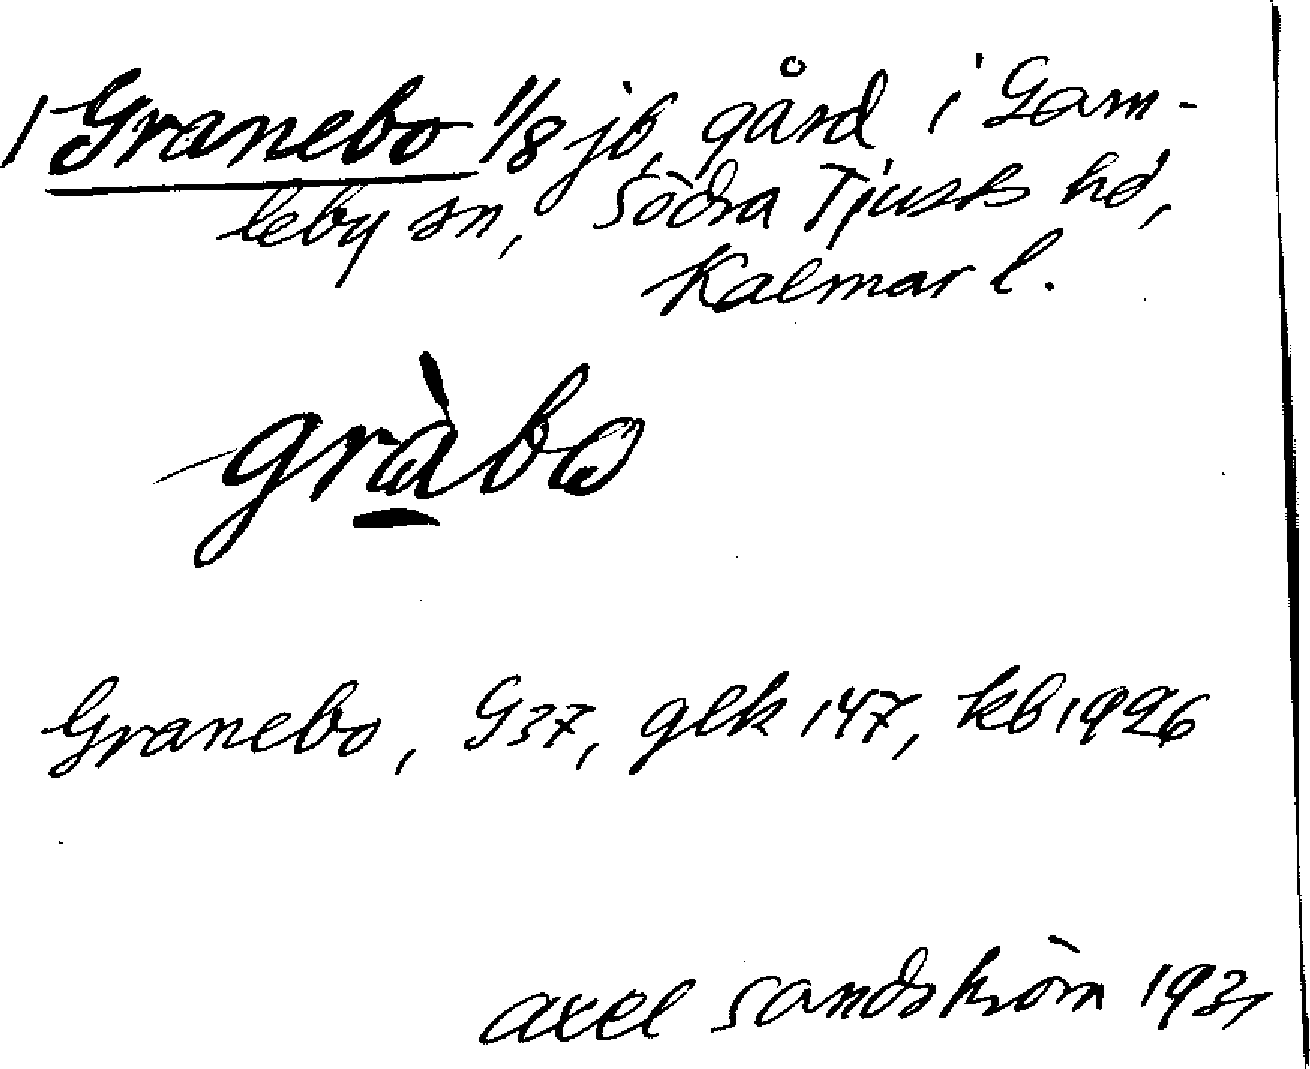 1 Granebo 1/8 jb, gård i Gam-
leby sn, Södra Tjusts hd,
Kalmar l.
gràbo
Granebo, G37, glk 147, kb 1926
Axel Sandström